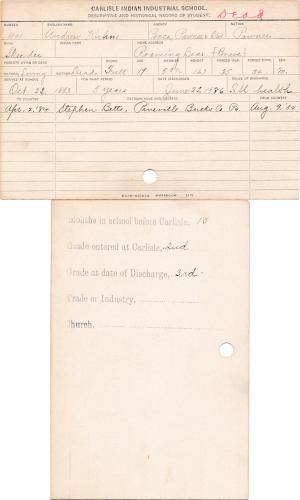 CARLISLE INDIAN INDUSTRIAL SCHOOL.
DESCRIPTIVE AND HISTORICAL RECORD OF STUDENT.
NUMBER ENGLISH NAME AGENCY NATION
401 Andrew Ponca Pawnee
INDIAN NAME HOME ADDRESS
Roaming
PARENTS LIVING OR DEAD BLOOD AGE HEIGHT WEIGHT FORCED INSP. FORCED EXPR. SEX
Living Dead Full 19 35 34 M.
ARRIVED AT SCHOOL FOR WHAT PERIOD DATE DISCHARGED CAUSE OF DISCHARGE
Oct 23, 1883 5 years June 22, 1886 Ill health
TO COUNTRY PATRONS NAME AND ADDRESS FROM COUNTRY
Apr. 2, '84 Stephen Betts, Pineville Bucks Co Pa. Aug. 9, '84
Months in school before Carlisle, 10
Grade entered at Carlisle, 2nd
Grade at date of Discharge, 3rd
Trade or Industry,
Church.